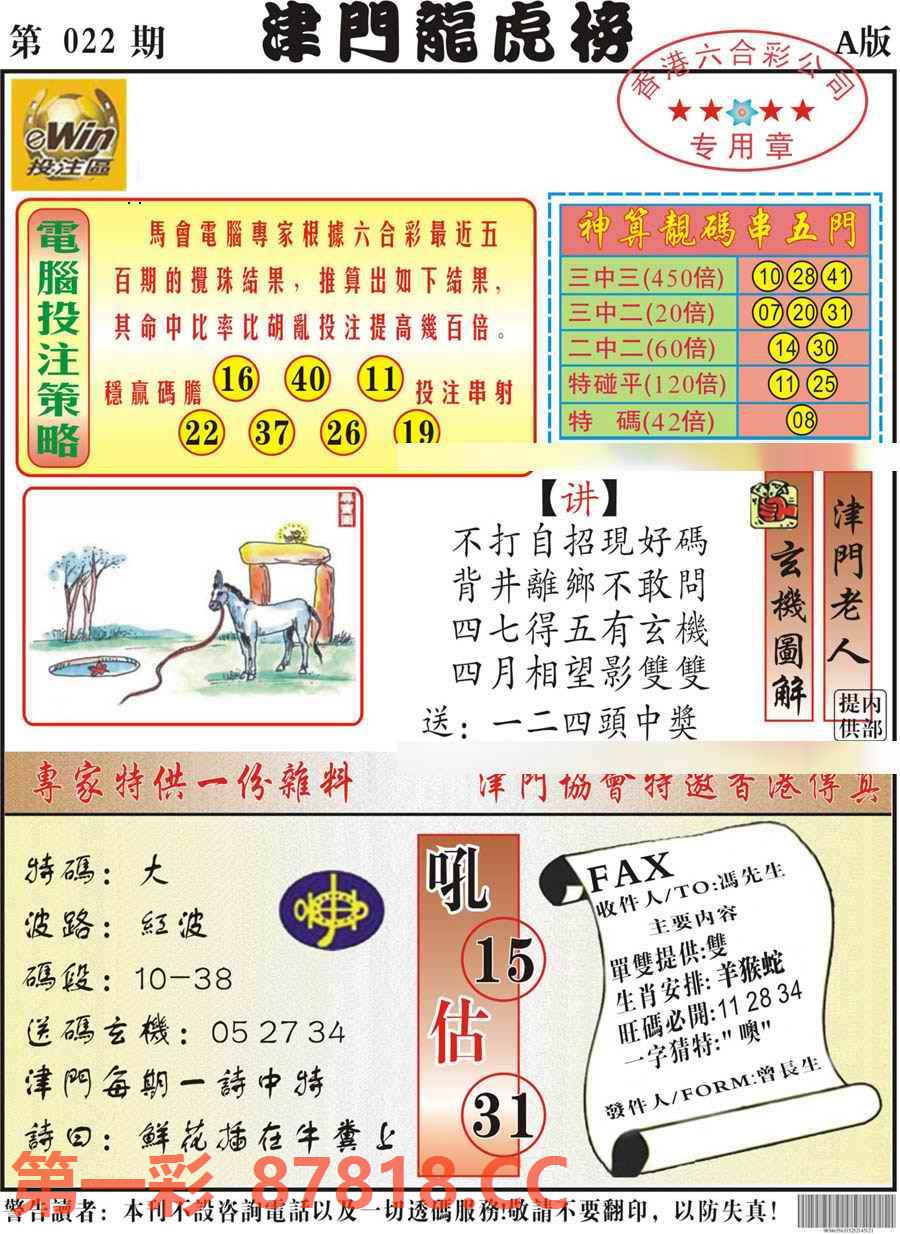 第 022 期
津門龍虎榜
A版
香港六合彩公司
★★★★
专用章
eWin
投注區
電腦投注策略
馬會電腦專家根據六合彩最近五
百期的攪珠結果，推算出如下結果，
其命中比率比胡亂投注提高幾百倍。
穩贏碼膽 16 40 11 投注串射
22 37 26 19
神算靚碼串五門
三中三(450倍) 10 28 41
三中二(20倍) 07 20 31
二中二(60倍) 14 30
特碰平(120倍) 11 25
特 碼(42倍) 08
【讲】
不打自招現好碼
背井離鄉不敢問
四七得五有玄機
四月相望影雙雙
送：一二四頭中獎
玄機圖解
津門老人
提供
内部
專家特供一份雜料
津門協會特邀香港傳真
特碼：大
波路：紅波
碼段：10-38
送碼玄機：05 27 34
津門每期一詩中特
詩曰：鮮花插在牛糞上
吼
15
估
31
FAX
收件人/TO:馮先生
主要内容
單雙提供:雙
生肖安排:羊猴蛇
旺碼必開:11 28 34
一字猜特:"噢"
發件人/FORM:曾長生
第一彩 87818.CC
警告讀者：本刊不設咨詢電話以及一切透碼服務!敬請不要翻印，以防失真！